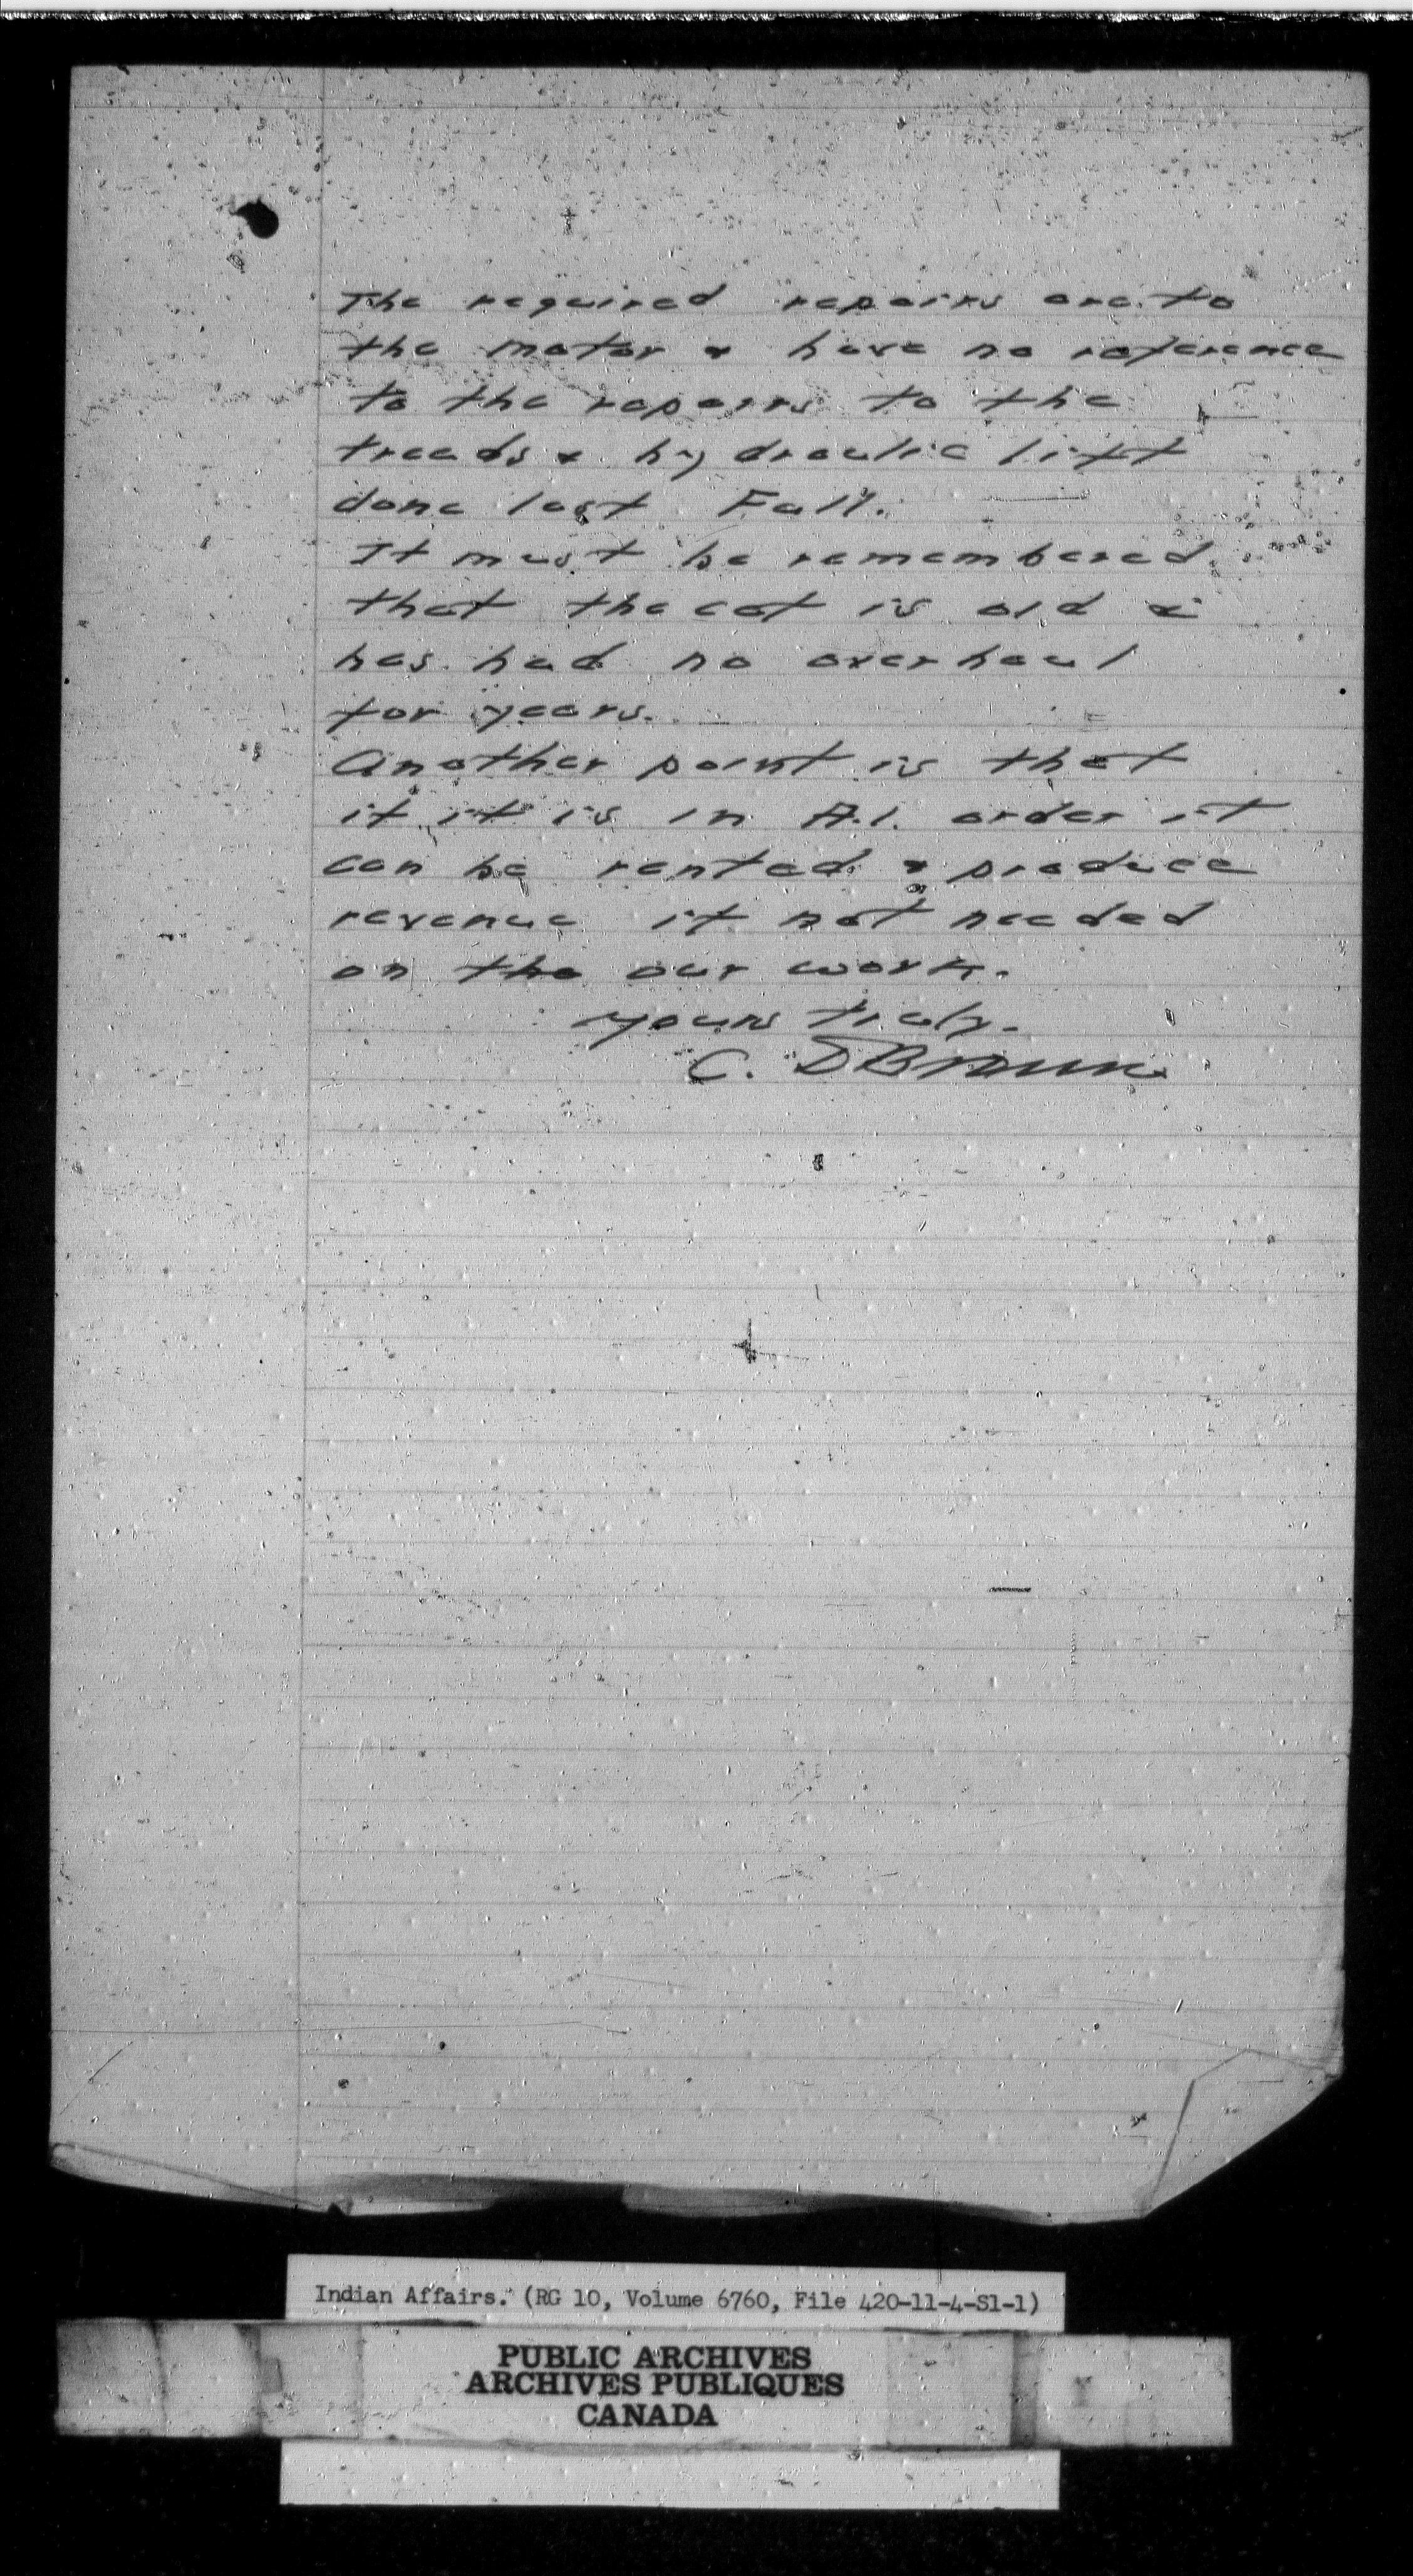 The required repairs are to
the motor & have no reference
to the repairs to the
treads & hydraulic lift
done last Fall.
It must be remembered
that the cat is old &
has had no overhaul
for years.
Another point is that
if it is in A.1. order it
can be rented & produce
revenue if not needed
on the our work.
Yours truly.
C. D Brown
Indian Affairs. (RG 10, Volume 6760, File 420-11-4-S1-1)
PUBLIC ARCHIVES
ARCHIVES PUBLIQUES
CANADA